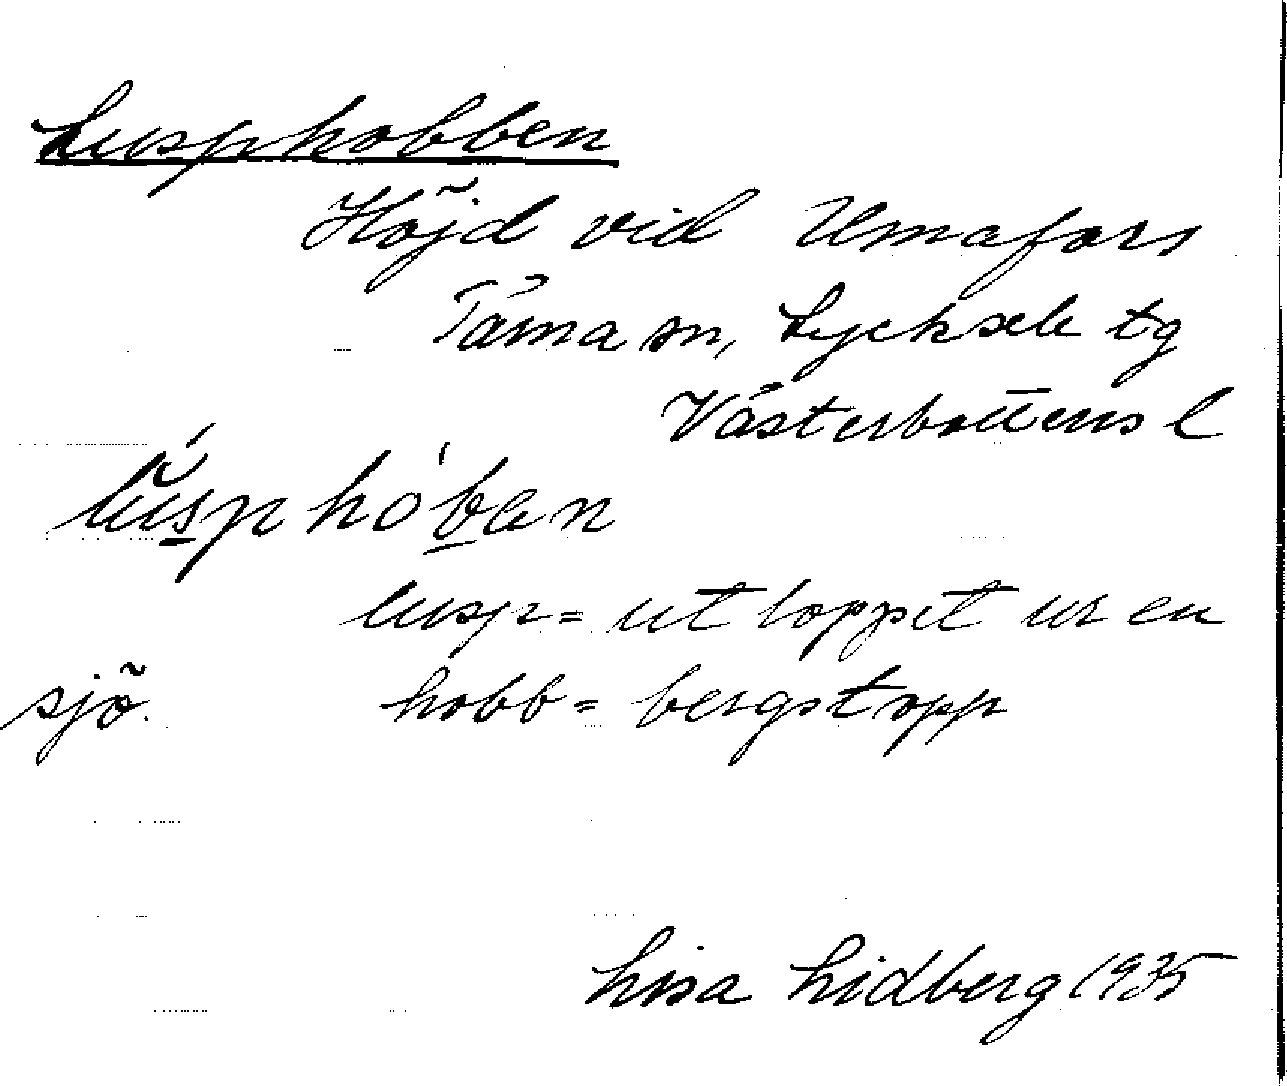 Lusphobben
Höjd vid Umafors
Tärna sn, Lycksele tg
Västerbottens l
lusp = utloppet ur en
sjö. hobb = bergstopp
Lisa Lidberg 1935